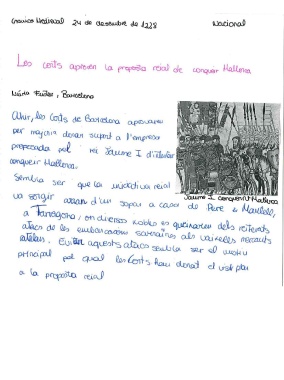 Crònica Medieval 24 de desembre de 1228 Nacional
Les corts aproven la proposta reial de conquerir Mallorca
Núria Fuster, Barcelona
Ahir, les Corts de Barcelona aprovaren
per majoria donar suport a l'empresa
proposada pel rei Jaume I d'intentar
conquerir Mallorca.
Sembla ser que la iniciativa reial
va sorgir arran d'un sopar a casa de Pere Martell,
a Tarragona, on diversos nobles es queixaren dels reiterats
atacs de les embarcacions sarraïnes als vaixells mercants
catalans. Evitar aquests atacs sembla ser el motiu
principal pel qual les Corts han donat el vist i plau
a la proposta reial
Jaume I conquerint Mallorca